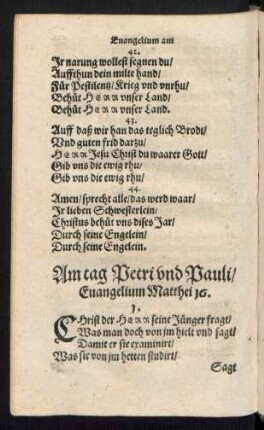 Euangelium am
42.
Ir narung wollest segnen du/
Auffthun dein milte hand/
Für Pestilentz/ Krieg vnd vnrhu/
Behüt HERR vnser Land/
Behüt HERR vnser Land.
43.
Auff daß wir han das teglich Brodt/
Vnd guten frid darzu/
HERR Jesu Christ du waarer Gott/
Gib vns die ewig rhu/
Gib vns die ewig rhu/
44.
Amen/ sprecht alle/ das werd waar/
Ir lieben Schwesterlein/
Christus behüt vns dises Jar/
Durch seine Engelein/
Durch seine Engelein.
Am tag Petri vnd Pauli/
Euangelium Matthei 16.
1.
CHrist der HERR seine Jünger fragt/
Was man doch von jm hielt vnd sagt/
Damit er sie examinirt/
Was sie von jm hetten studirt/
Sagt